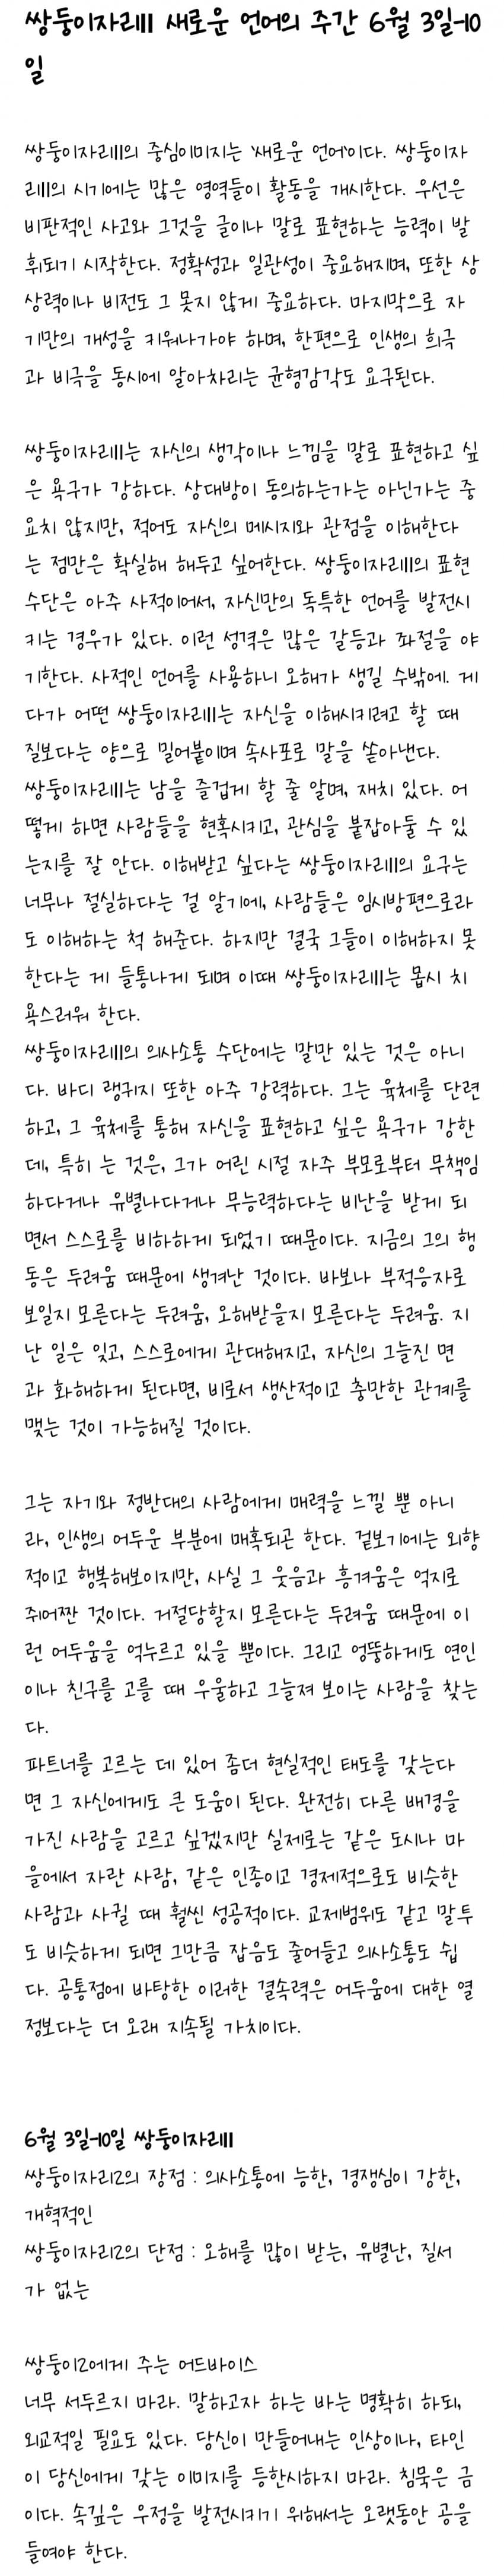 쌍둥이자리Ⅲ 새로운 언어의 주간 6월 3일-10
일
쌍둥이자리Ⅲ의 중심이미지는 '새로운 언어'이다. 쌍둥이자
리Ⅲ의 시기에는 많은 영역들이 활동을 개시한다. 우선은
비판적인 사고와 그것을 글이나 말로 표현하는 능력이 발
휘되기 시작한다. 정확성과 일관성이 중요해지며, 또한 상
상력이나 비전도 그 못지 않게 중요하다. 마지막으로 자
기만의 개성을 키워나가야 하며, 한편으로 인생의 희극
과 비극을 동시에 알아차리는 균형감각도 요구된다.
쌍둥이자리Ⅲ는 자신의 생각이나 느낌을 말로 표현하고 싶
은 욕구가 강하다. 상대방이 동의하는가는 아닌가는 중
요치 않지만, 적어도 자신의 메시지와 관점을 이해한다
는 점만은 확실해 해두고 싶어한다. 쌍둥이자리Ⅲ의 표현
수단은 아주 사적이어서, 자신만의 독특한 언어를 발전시
키는 경우가 있다. 이런 성격은 많은 갈등과 좌절을 야
기한다. 사적인 언어를 사용하니 오해가 생길 수밖에. 게
다가 어떤 쌍둥이자리Ⅲ는 자신을 이해시키려고 할 때
질보다는 양으로 밀어붙이며 속사포로 말을 쏟아낸다.
쌍둥이자리Ⅲ는 남을 즐겁게 할 줄 알며, 재치 있다. 어
떻게 하면 사람들을 현혹시키고, 관심을 붙잡아둘 수 있
는지를 잘 안다. 이해받고 싶다는 쌍둥이자리Ⅲ의 요구는
너무나 절실하다는 걸 알기에, 사람들은 임시방편으로라
도 이해하는 척 해준다. 하지만 결국 그들이 이해하지 못
한다는 게 들통나게 되며 이때 쌍둥이자리Ⅲ는 몹시 치
욕스러워 한다.
쌍둥이자리Ⅲ의 의사소통 수단에는 말만 있는 것은 아니
다. 바디 랭귀지 또한 아주 강력하다. 그는 육체를 단련
하고, 그 육체를 통해 자신을 표현하고 싶은 욕구가 강한
데, 특히 는 것은, 그가 어린 시절 자주 부모로부터 무책임
하다거나 유별나다거나 무능력하다는 비난을 받게 되
면서 스스로를 비하하게 되었기 때문이다. 지금의 그의 행
동은 두려움 때문에 생겨난 것이다. 바보나 부적응자로
보일지 모른다는 두려움, 오해받을지 모른다는 두려움. 지
난 일은 잊고, 스스로에게 관대해지고, 자신의 그늘진 면
과 화해하게 된다면, 비로서 생산적이고 충만한 관계를
맺는 것이 가능해질 것이다.
그는 자기와 정반대의 사람에게 매력을 느낄 뿐 아니
라, 인생의 어두운 부분에 매혹되곤 한다. 겉보기에는 외향
적이고 행복해보이지만, 사실 그 웃음과 흥겨움은 억지로
쥐어짠 것이다. 거절당할지 모른다는 두려움 때문에 이
런 어두움을 억누르고 있을 뿐이다. 그리고 엉뚱하게도 연인
이나 친구를 고를 때 우울하고 그늘져 보이는 사람을 찾는
다.
파트너를 고르는 데 있어 좀더 현실적인 태도를 갖는다
면 그 자신에게도 큰 도움이 된다. 완전히 다른 배경을
가진 사람을 고르고 싶겠지만 실제로는 같은 도시나 마
을에서 자란 사람, 같은 인종이고 경제적으로도 비슷한
사람과 사귈 때 훨씬 성공적이다. 교제범위도 같고 말투
도 비슷하게 되면 그만큼 잡음도 줄어들고 의사소통도 쉽
다. 공통점에 바탕한 이러한 결속력은 어두움에 대한 열
정보다는 더 오래 지속될 가치이다.
6월 3일-10일 쌍둥이자리Ⅲ
쌍둥이자리2의 장점 : 의사소통에 능한, 경쟁심이 강한,
개혁적인
쌍둥이자리2의 단점 : 오해를 많이 받는, 유별난, 질서
가 없는
쌍둥이2에게 주는 어드바이스
너무 서두르지 마라. 말하고자 하는 바는 명확히 하되,
외교적일 필요도 있다. 당신이 만들어내는 인상이나, 타인
이 당신에게 갖는 이미지를 등한시하지 마라. 침묵은 금
이다. 속깊은 우정을 발전시키기 위해서는 오랫동안 공을
들여야 한다.